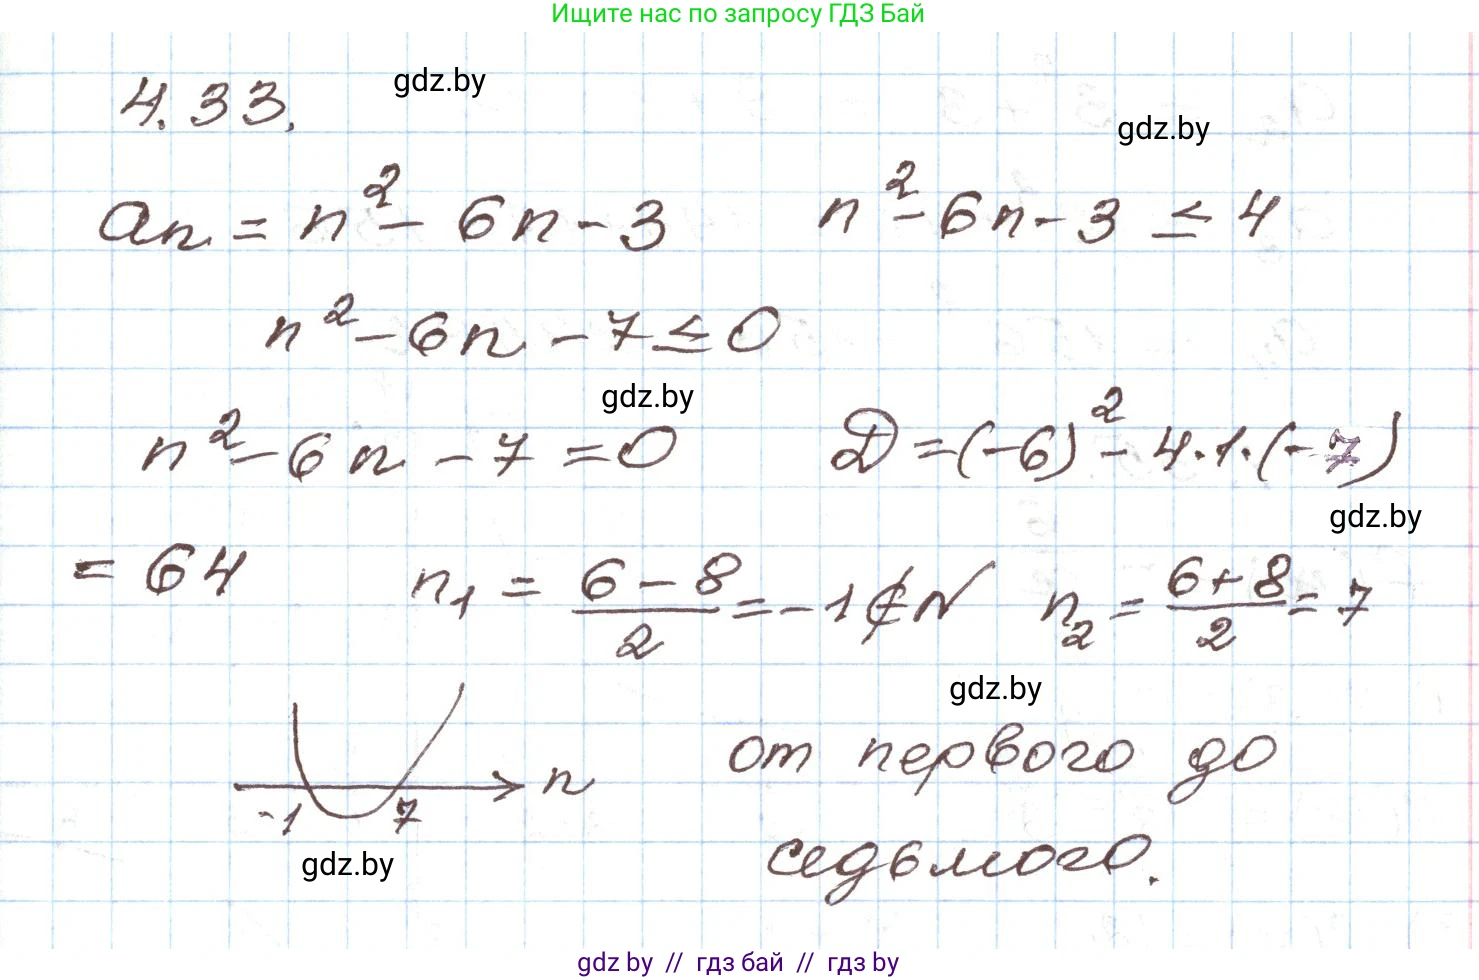 Ищите нас по запросу ГДЗ Бай
4.33. gdz.by
gdz.by
aₙ = n² - 6n - 3 n² - 6n - 3 ≤ 4
n² - 6n - 7 ≤ 0
gdz.by
n² - 6n - 7 = 0 D = (-6)² - 4·1·(-7)
gdz.by
= 64 n₁ = (6 - 8)/2 = -1 ∉ N n₂ = (6 + 8)/2 = 7
gdz.by
-1 7 n от первого до
седьмого.
gdz.by
gdz by // гдз бай // гдз by